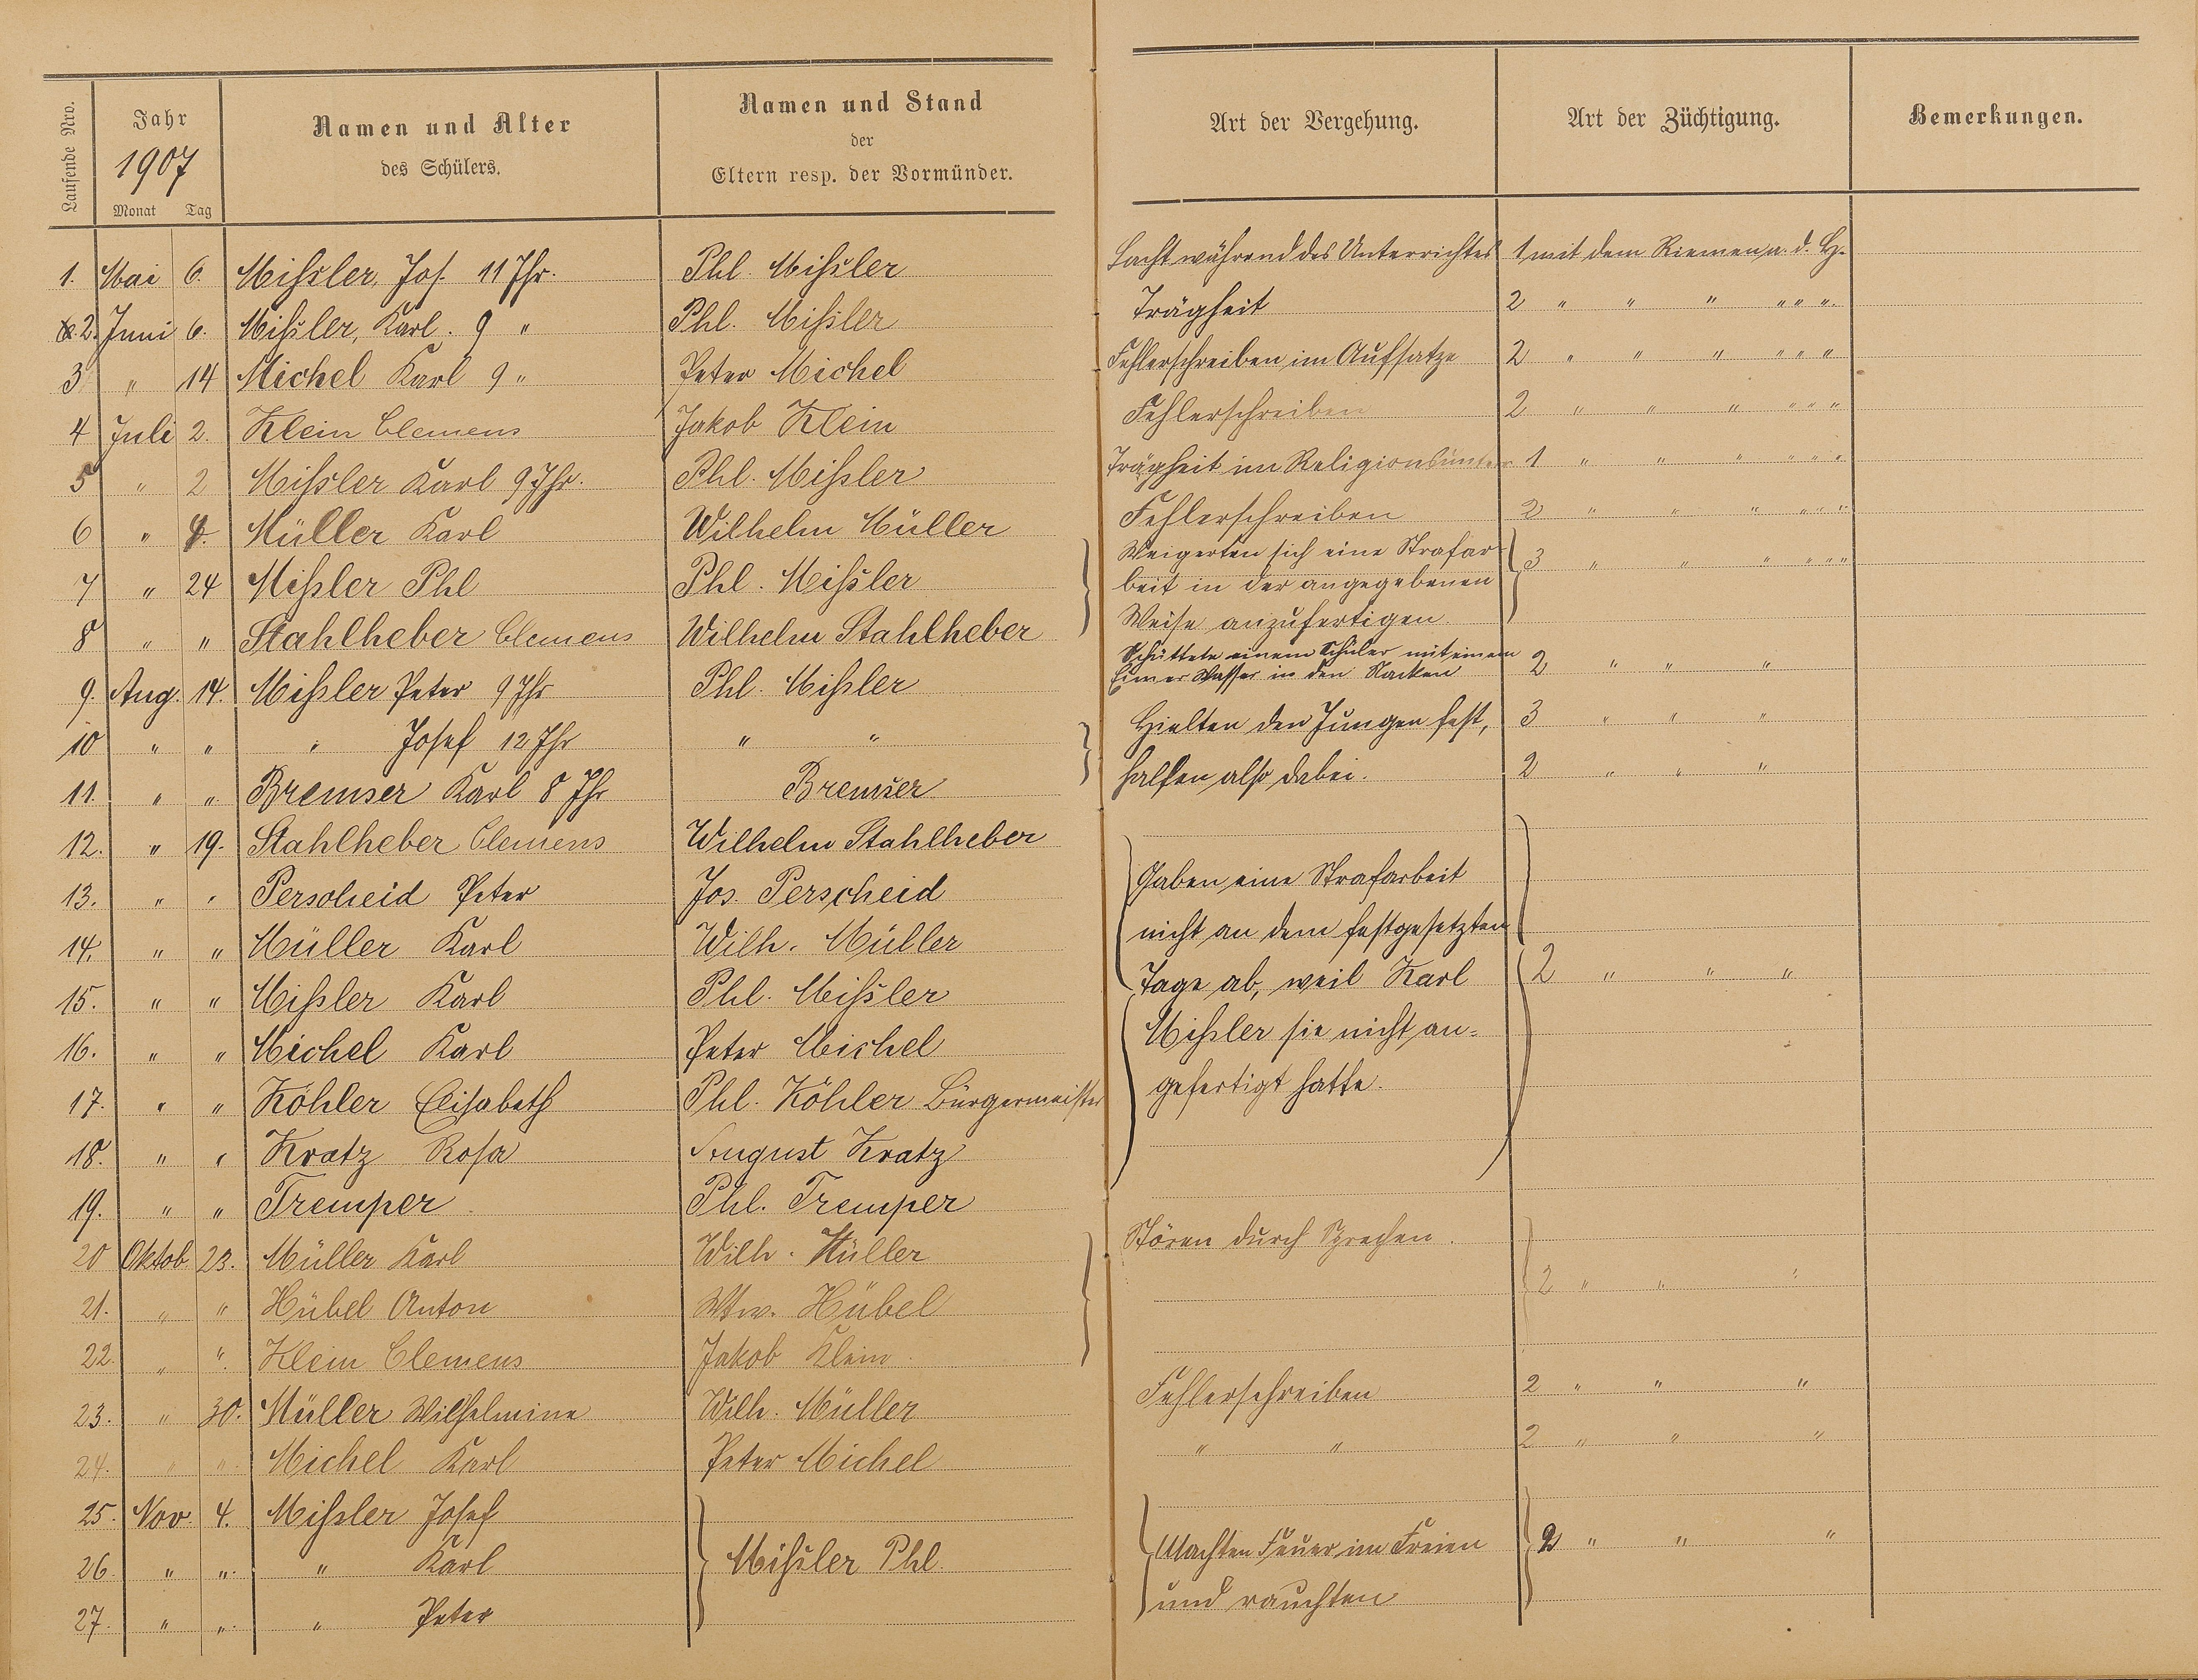 Laufende Nro.
Jahr
1907
Monat Tag
Namen und Alter
des Schülers.
Namen und Stand
der
Eltern resp. der Vormünder.
Art der Vergehung.
Art der Züchtigung.
Bemerkungen.
1. Mai 6. Mißler, Jos. 11 Jhr. Phl. Mißler Lacht während des Unterrichtes 1 mit dem Riemen a. d. H.
2. Juni 6. Mißler, Karl. 9 " Phl. Mißler Trägheit 2 " " " " " "
3 " 14 Michel Karl 9 " Peter Michel Fehlerschreiben im Aufsatze 2 " " " " " "
4 Juli 2. Klein Clemens Jakob Klein Fehlerschreiben 2 " " " " " "
5 " 2 Mißler Karl 9 Jhr. Phl. Mißler Trägheit im Religionsunter 1 " " " " " "
6 " Müller Karl Wilhelm Müller Fehlerschreiben 2 " " " " " "
7 " 24 Mißler Phl Phl. Mißler Weigerten sich eine Strafar- 3 " " " " " "
beit in der angegebenen
8 " " Stahlheber Clemens Wilhelm Stahlheber Weise anzufertigen.
Schüttete einem Schüler mit einem
9. Aug. 14. Mißler Peter 9 Jhr Phl. Mißler Eimer Wasser in den Nacken 2 " " "
10 " " " Josef 12 Jhr " " Hielten den Jungen fest, 3 " " "
11. " " Bremser Karl 8 Jhr Bremser halfen also dabei. 2 " " "
12. " 19. Stahlheber Clemens Wilhelm Stahlheber
13. " " Perscheid Peter Jos. Perscheid Gaben eine Strafarbeit
14. " " Müller Karl Wilh. Müller nicht an dem festgesetzten
15. " " Mißler Karl Phl. Mißler Tage ab, weil Karl 2 " " "
16. " " Michel Karl Peter Michel Mißler sie nicht an-
17. " " Köhler Elisabeth Phl. Köhler Bürgermeister gefertigt hatte.
18. " " Kratz Rosa August Kratz
19. " " Tremper Phl. Tremper
20 Oktob. 23. Müller Karl Wilh. Müller Stören durch Sprechen.
21. " " Hübel Anton Wtw. Hübel 2 " " "
22. " " Klein Clemens Jakob Klein
23. " 30. Müller Wilhelmine Wilh. Müller Fehlerschreiben 2 " " "
24. " " Michel Karl Peter Michel " " 2 " " "
25. Nov. 4. Mißler Josef
26. " " " Karl Mißler Phl. Machten Feuer im Freien 2 " " "
27. " " " Peter und rauchten